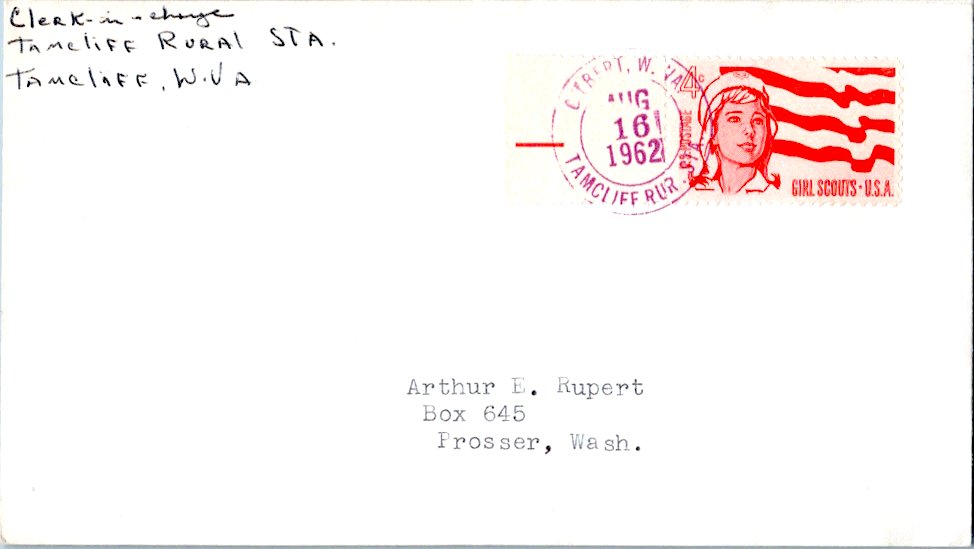 Clerk-in-charge
Tamcliff Rural STA.
Tamcliff, W.VA
GILBERT, W. VA.
AUG
16
1962
TAMCLIFF RUR. STA.
4c
U.S. POSTAGE
GIRL SCOUTS · U.S.A.
Arthur E. Rupert
Box 645
Prosser, Wash.